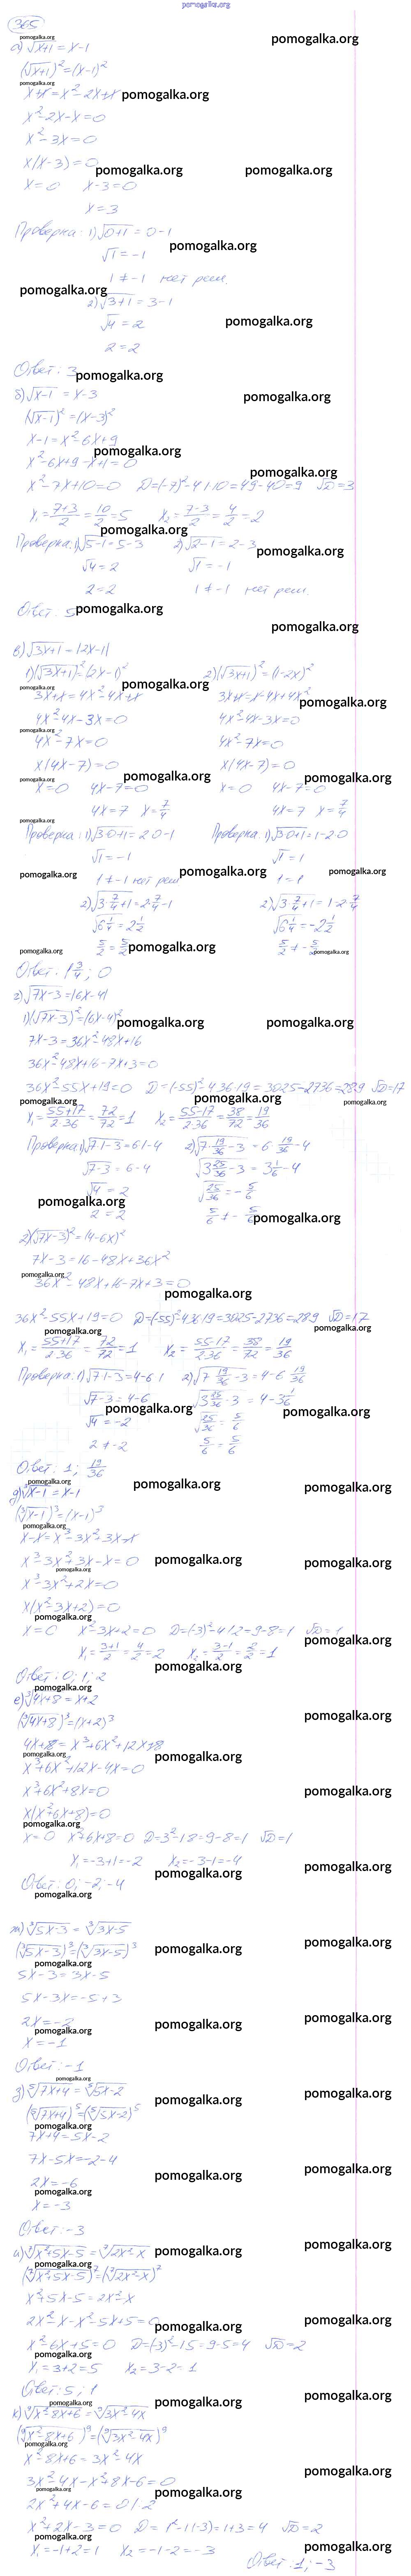 pomogalka.org
365
а) √x+1 = x-1
(√x+1)² = (x-1)²
x+1 = x²-2x+1
x²-2x-x=0
x²-3x=0
x(x-3)=0
x=0 x-3=0
x=3
Проверка: 1) √0+1 = 0-1
√1 = -1
1 ≠ -1 нет реш.
2) √3+1 = 3-1
√4 = 2
2 = 2
Ответ: 3
б) √x-1 = x-3
(√x-1)² = (x-3)²
x-1 = x²-6x+9
x²-6x+9-x+1=0
x²-7x+10=0 D=(-7)²-4·1·10=49-40=9 √D=3
x₁=7+3/2=10/2=5 x₂=7-3/2=4/2=2
Проверка: 1) √5-1=5-3 2) √2-1=2-3
√4=2 √1=-1
2=2 1≠-1 нет реш.
Ответ: 5
в) √3x+1 = |2x-1|
1) (√3x+1)²=(2x-1)² 2) (√3x+1)²=(1-2x)²
3x+1=4x²-4x+1 3x+1=1-4x+4x²
4x²-4x-3x=0 4x²-4x-3x=0
4x²-7x=0 4x²-7x=0
x(4x-7)=0 x(4x-7)=0
x=0 4x-7=0 x=0 4x-7=0
4x=7 x=7/4 4x=7 x=7/4
Проверка: 1) √3·0+1=2·0-1 Проверка: 1) √3·0+1=1-2·0
√1=-1 √1=1
1≠-1 нет реш 1=1
2) √3·7/4+1=2·7/4-1 2) √3·7/4+1=1-2·7/4
√6 1/4=2 1/2 √6 1/4=-2 1/2
5/2=5/2 5/2≠-5/2
Ответ: 1 3/4; 0
г) √7x-3=|6x-4|
1) (√7x-3)²=(6x-4)²
7x-3=36x²-48x+16
36x²-48x+16-7x+3=0
36x²-55x+19=0 D=(-55)²-4·36·19=3025-2736=289 √D=17
x₁=55+17/2·36=72/72=1 x₂=55-17/2·36=38/72=19/36
Проверка: 1) √7·1-3=6·1-4 2) √7·19/36-3=6·19/36-4
√7-3=6-4 √3 25/36-3=3 1/6-4
√4=2 √25/36=-5/6
2=2 5/6≠-5/6
2) (√7x-3)²=(4-6x)²
7x-3=16-48x+36x²
36x²-48x+16-7x+3=0
36x²-55x+19=0 D=(-55)²-4·36·19=3025-2736=289 √D=17
x₁=55+17/2·36=72/72=1 x₂=55-17/2·36=38/72=19/36
Проверка: 1) √7·1-3=4-6·1 2) √7·19/36-3=4-6·19/36
√7-3=4-6 √3 25/36-3=4-3 1/6
√4=-2 √25/36=5/6
2≠-2 5/6=5/6
Ответ: 1; 19/36
д) ³√x-1=x-1
(³√x-1)³=(x-1)³
x-1=x³-3x²+3x-1
x³-3x²+3x-x=0
x³-3x²+2x=0
x(x²-3x+2)=0
x=0 x²-3x+2=0 D=(-3)²-4·1·2=9-8=1 √D=1
x₁=3+1/2=4/2=2 x₂=3-1/2=2/2=1
Ответ: 0; 1; 2
е) ³√4x+8=x+2
(³√4x+8)³=(x+2)³
4x+8=x³+6x²+12x+8
x³+6x²+12x-4x=0
x³+6x²+8x=0
x(x²+6x+8)=0
x=0 x²+6x+8=0 D=3²-1·8=9-8=1 √D=1
x₁=-3+1=-2 x₂=-3-1=-4
Ответ: 0; -2; -4
ж) ³√5x-3=³√3x-5
(³√5x-3)³=(³√3x-5)³
5x-3=3x-5
5x-3x=-5+3
2x=-2
x=-1
Ответ: -1
з) ⁵√7x+4=⁵√5x-2
(⁵√7x+4)⁵=(⁵√5x-2)⁵
7x+4=5x-2
7x-5x=-2-4
2x=-6
x=-3
Ответ: -3
и) ⁷√x²+5x-5=⁷√2x²-x
(⁷√x²+5x-5)⁷=(⁷√2x²-x)⁷
x²+5x-5=2x²-x
2x²-x-x²-5x+5=0
x²-6x+5=0 D=(-3)²-1·5=9-5=4 √D=2
x₁=3+2=5 x₂=3-2=1
Ответ: 5; 1
к) ⁹√x²-8x+6=⁹√3x²-4x
(⁹√x²-8x+6)⁹=(⁹√3x²-4x)⁹
x²-8x+6=3x²-4x
3x²-4x-x²+8x-6=0
2x²+4x-6=0 /:2
x²+2x-3=0 D=1²-1·(-3)=1+3=4 √D=2
x₁=-1+2=1 x₂=-1-2=-3
Ответ: 1; -3